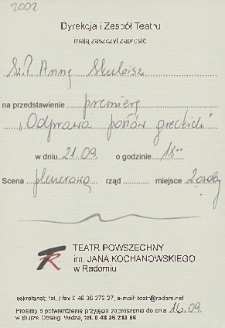 2002
Dyrekcja i Zespół Teatru
mają zaszczyt zaprosić
Sz.P. Annę Skubisz
na przedstawienie premierę
"Odprawa posłów greckich"
w dniu 21.09. o godzinie 18⁰⁰
Scena plenerowa rząd miejsce 2 osoby
TEATR POWSZECHNY
im. JANA KOCHANOWSKIEGO
w Radomiu
sekretariat: tel. / fax 0 48 36 275 27, e-mail: teatr@radom.net
Prosimy o potwierdzenie przyjęcia zaproszenia do dnia 16.09.
w Biurze Obsługi Widza, tel. 0 48 36